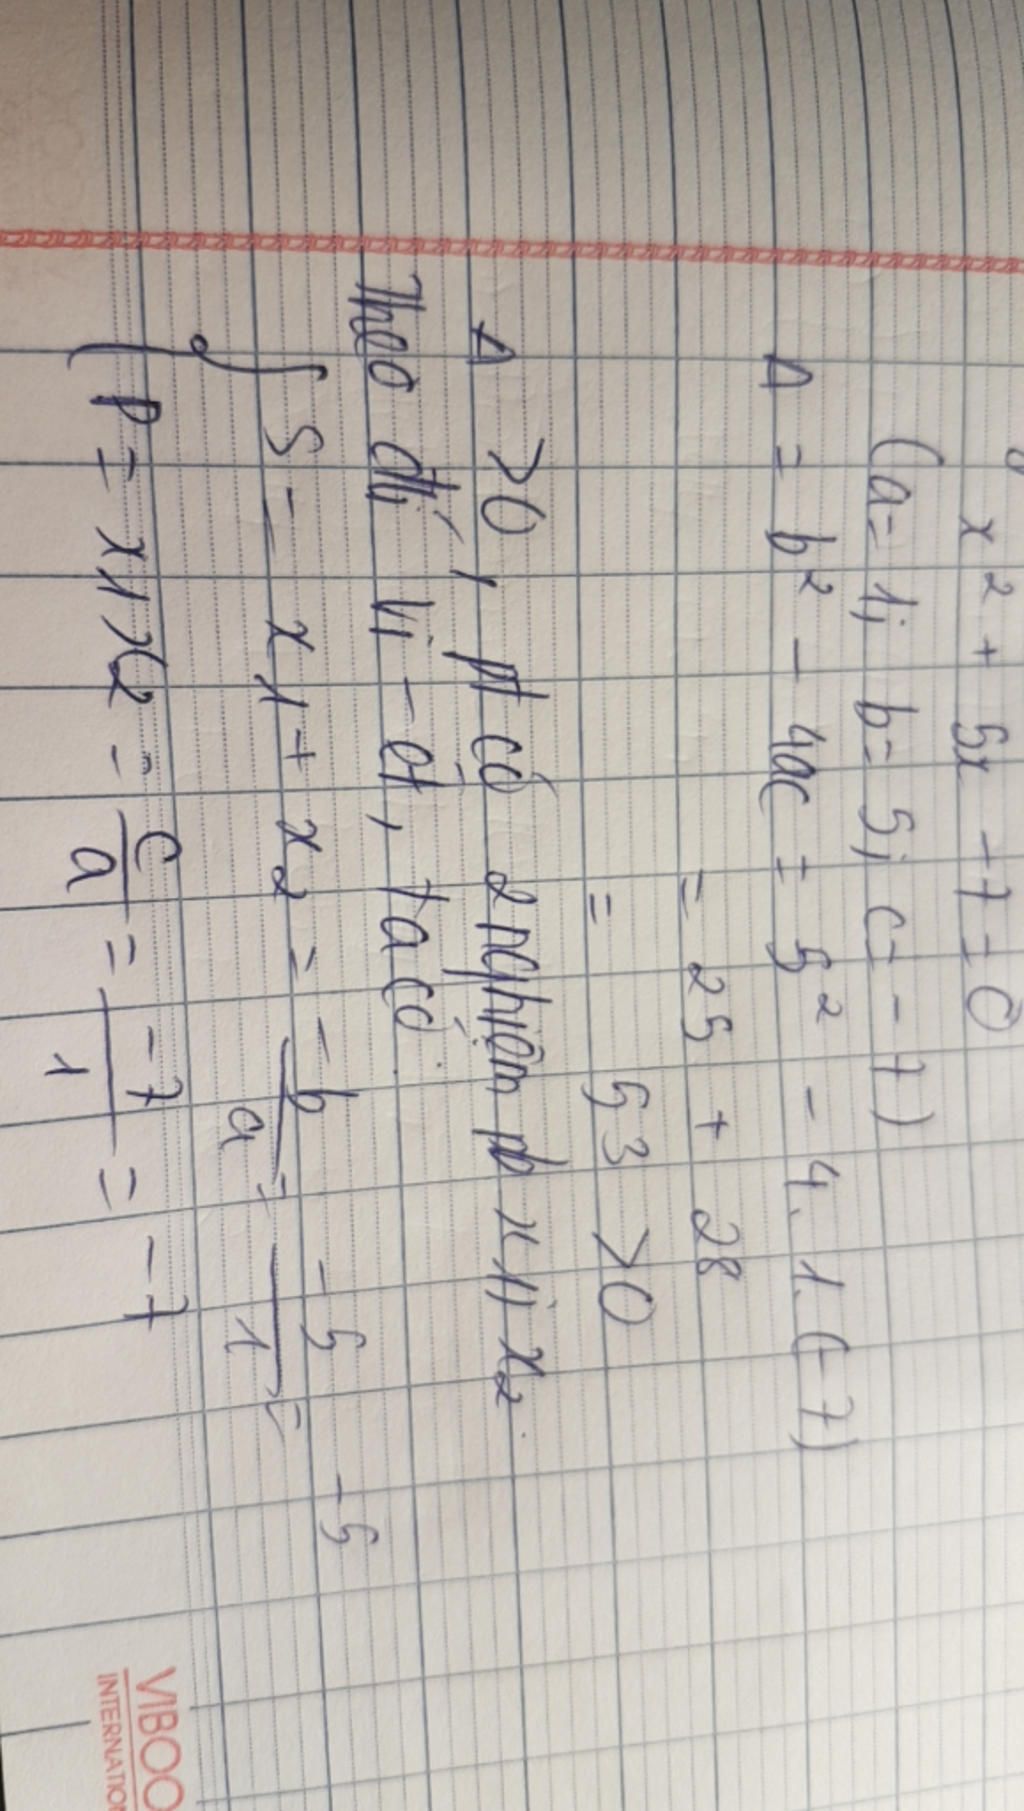 x² + 5x - 7 = 0
(a = 1; b = 5; c = -7)
Δ = b² - 4ac = 5² - 4.1.(-7)
= 25 + 28
= 53 > 0
Δ > 0, pt có 2 nghiệm pb x1; x2.
Theo đlí Vi-ét, ta có:
{ S = x1 + x2 = -b/a = -5/1 = -5
P = x1x2 = c/a = -7/1 = -7
VIBOO
INTERNATION